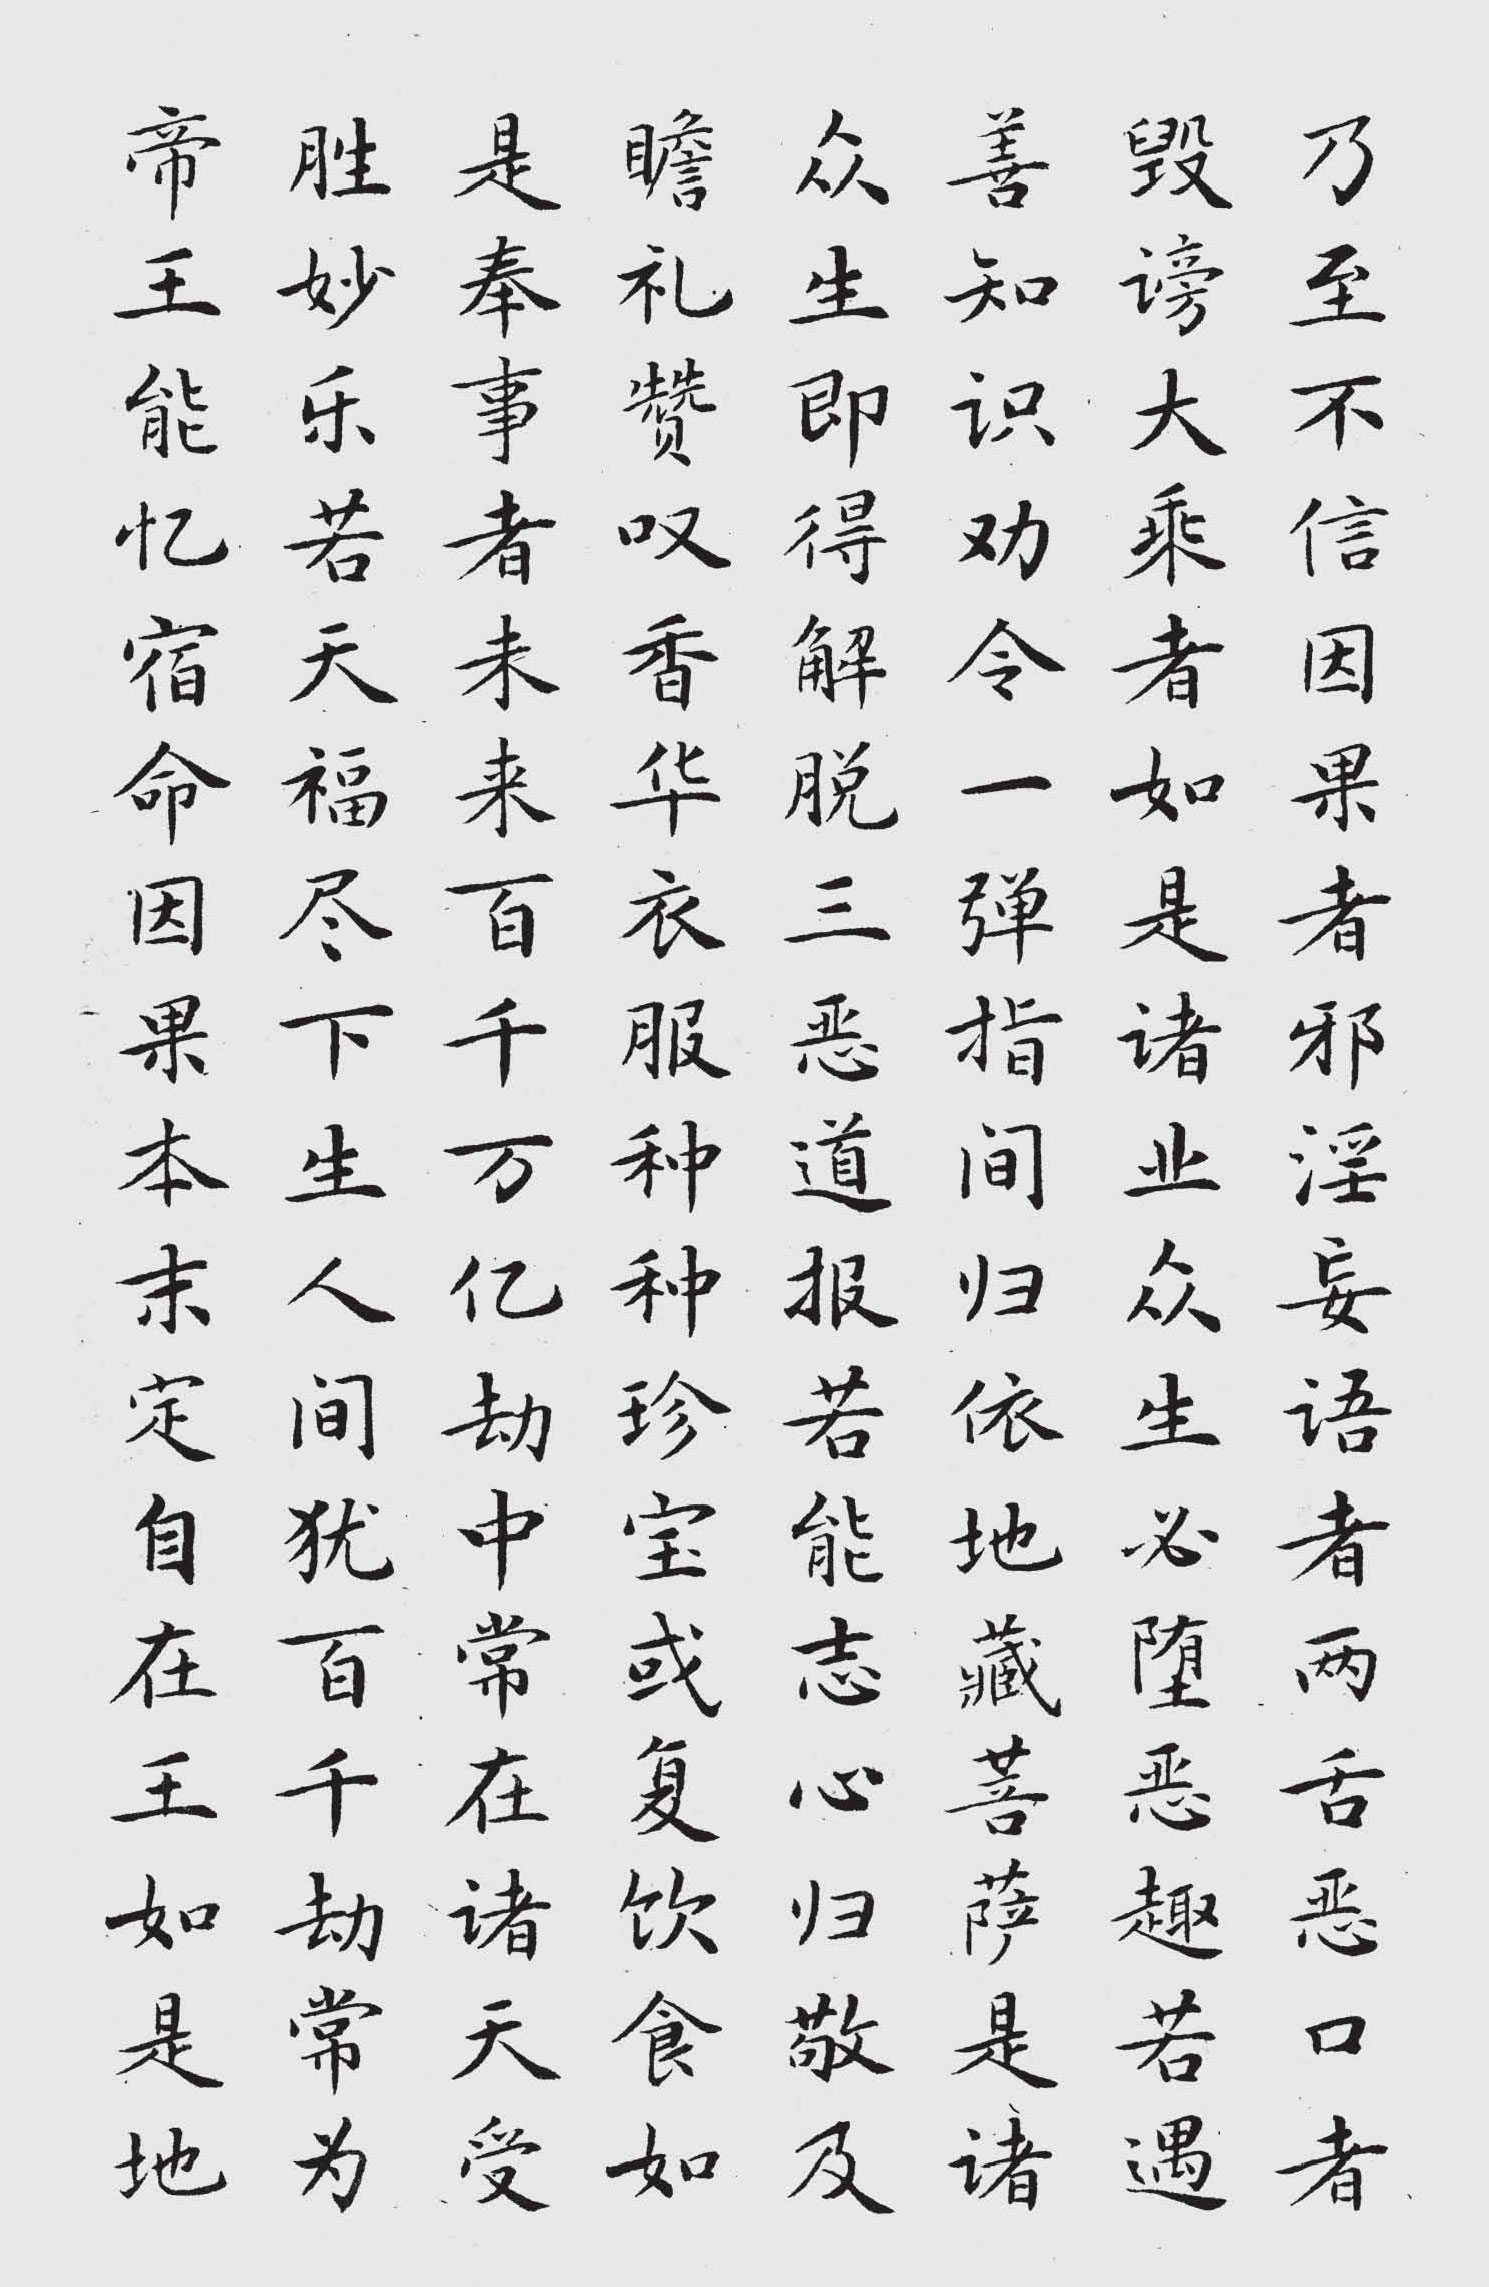 乃至不信因果者邪淫妄语者两舌恶口者
毁谤大乘者如是诸业众生必堕恶趣若遇
善知识劝令一弹指间归依地藏菩萨是诸
众生即得解脱三恶道报若能志心归敬及
瞻礼赞叹香华衣服种种珍宝或复饮食如
是奉事者未来百千万亿劫中常在诸天受
胜妙乐若天福尽下生人间犹百千劫常为
帝王能忆宿命因果本末定自在王如是地